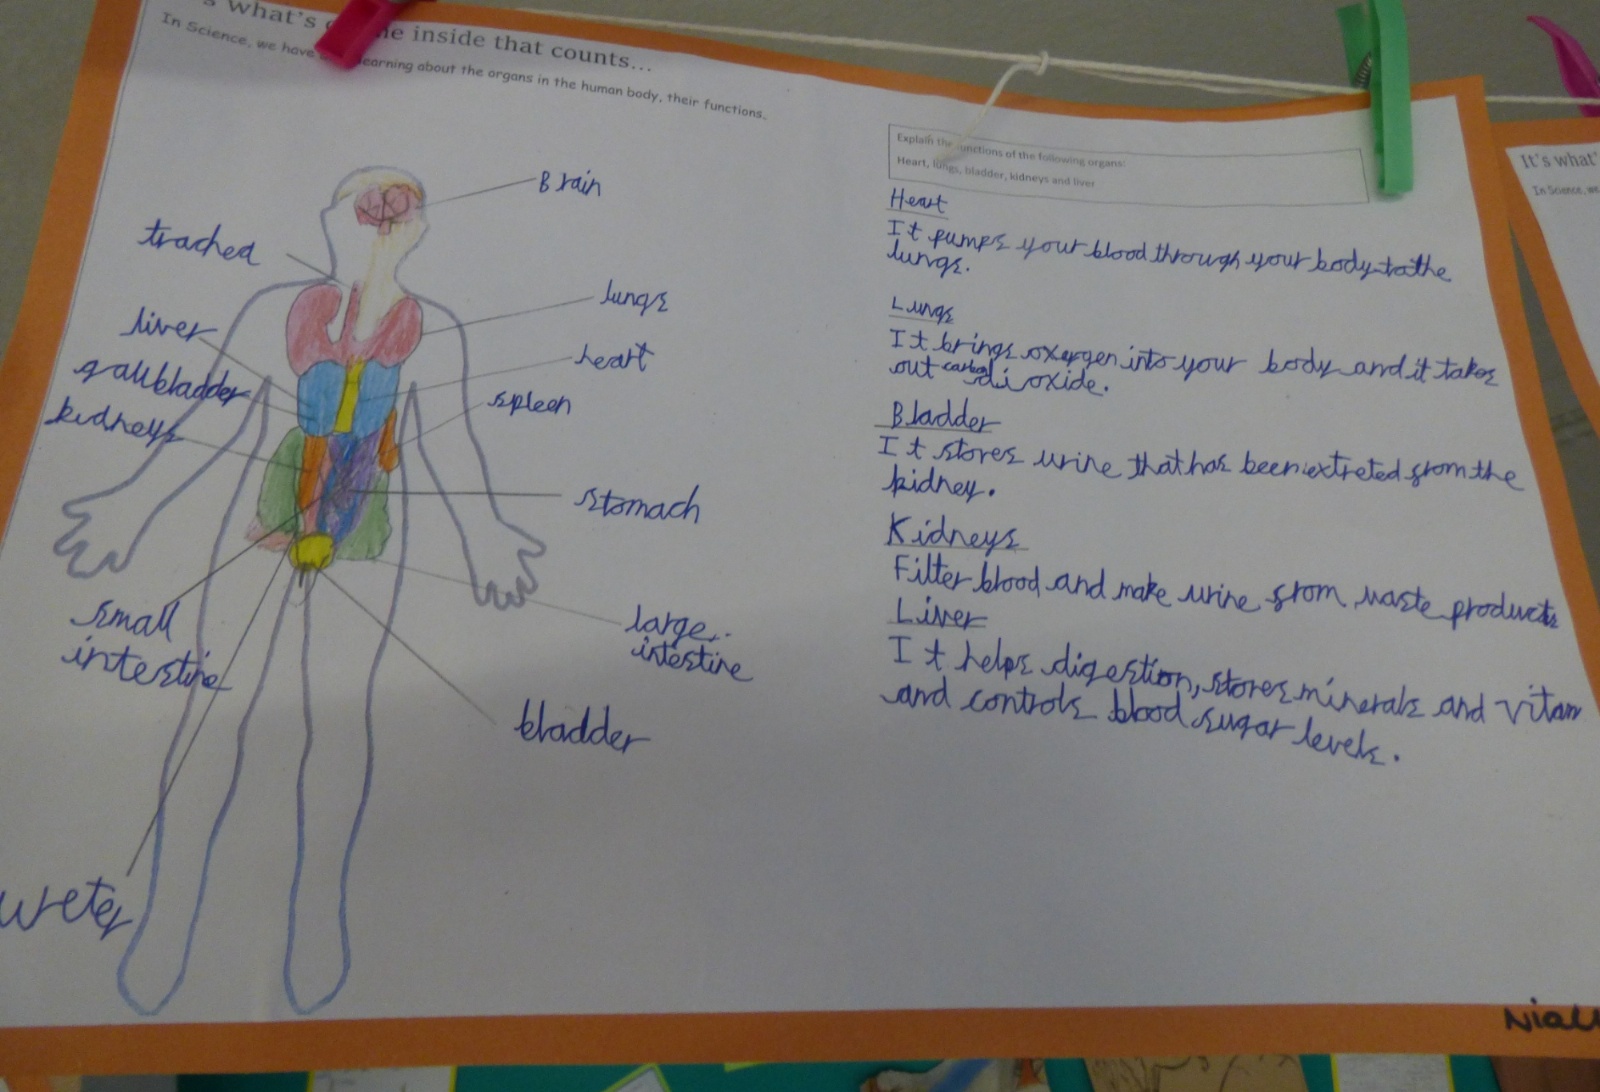 s what's the inside that counts...
In Science, we have learning about the organs in the human body, their functions.
Brain
trachea
lungs
liver
heart
gallbladder
spleen
kidneys
stomach
small
intestine
large
intestine
bladder
ureter
Explain the functions of the following organs:
Heart, lungs, bladder, kidneys and liver
Heart
It pumps your blood through your body to the
lungs.
Lungs
It brings oxergen into your body and it takes
out carbon di oxide.
Bladder
It stores urine that has been extreted from the
kidney.
Kidneys
Filter blood and make urine from waste products
Liver
It helps digestion, stores minerals and vitam
and controls blood sugar levels.
Niall
It's what'
In Science, we